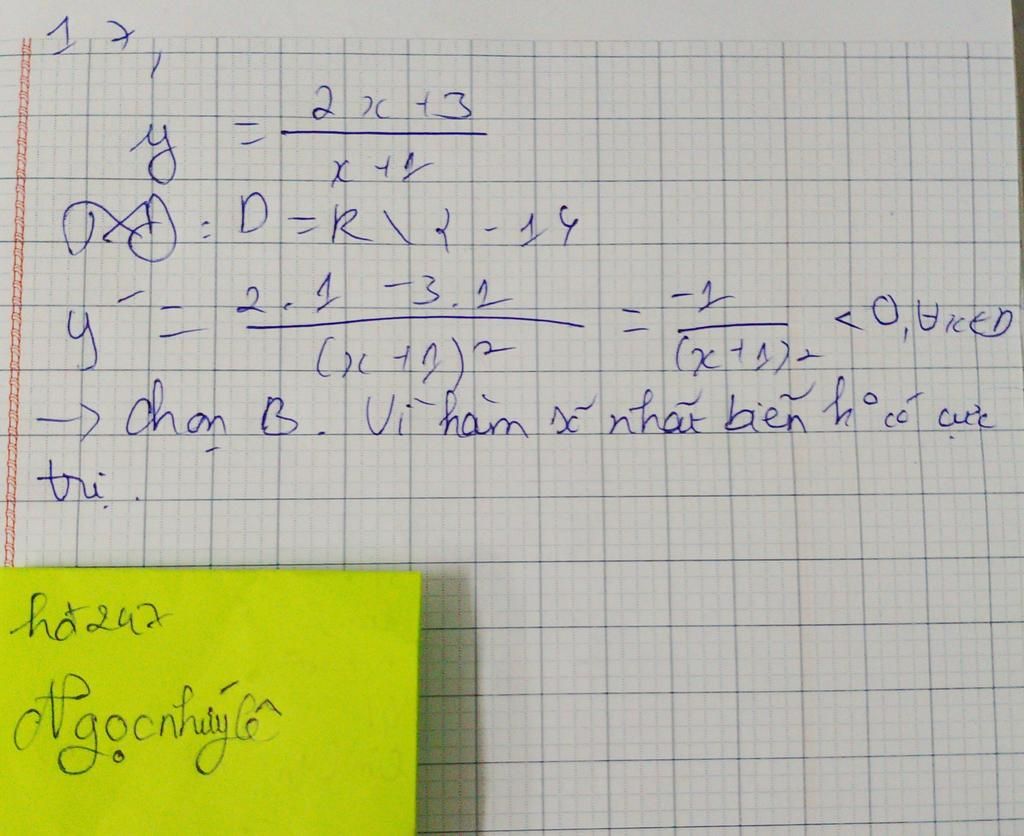 17,
y = (2x+3)/(x+1)
TXĐ: D = R \ {-1}
y' = (2.1 - 3.1)/(x+1)² = -1/(x+1)² < 0, ∀x∈D
→ Chọn B. Vì hàm số nhất biến ko có cực
trị.
hđ247
Ngọcnhưýlê